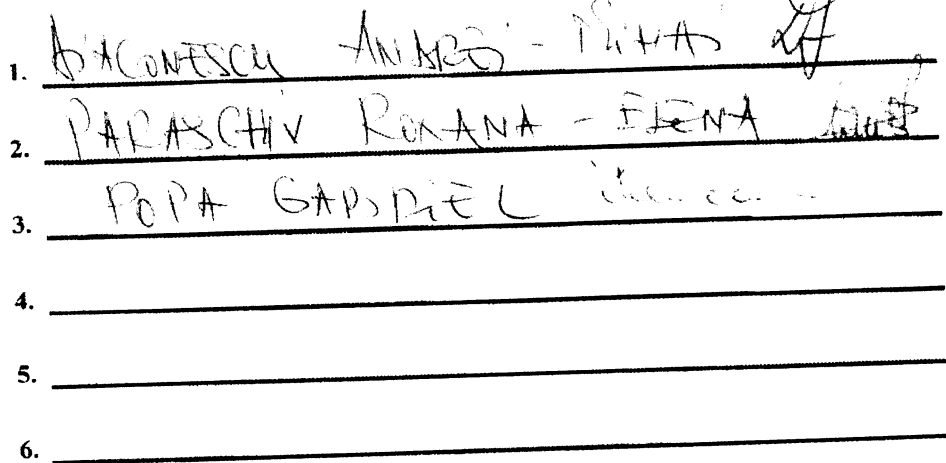 1. DIACONESCU ANDREI - MIHAI
2. PARASCHIV ROXANA - ELENA
3. POPA GABRIEL
4.
5.
6.